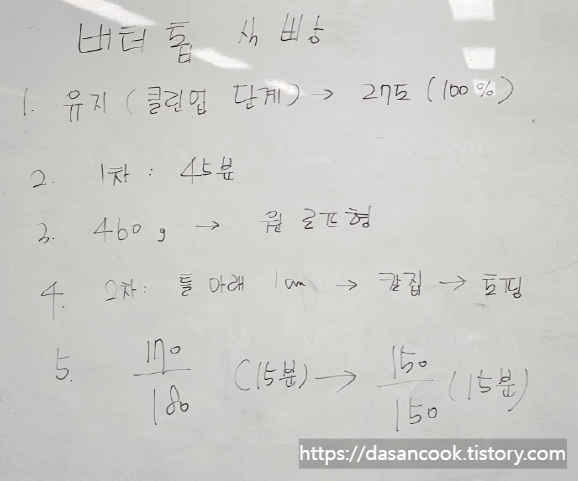 버터 톱 식빵
1. 유지 (클린업 단계) → 27도 (100%)
2. 1차 : 45분
3. 460g → 원 로프형
4. 2차: 틀 아래 1cm → 칼집 → 토핑
5. 170/180 (15분) → 150/150 (15분)
https://dasancook.tistory.com